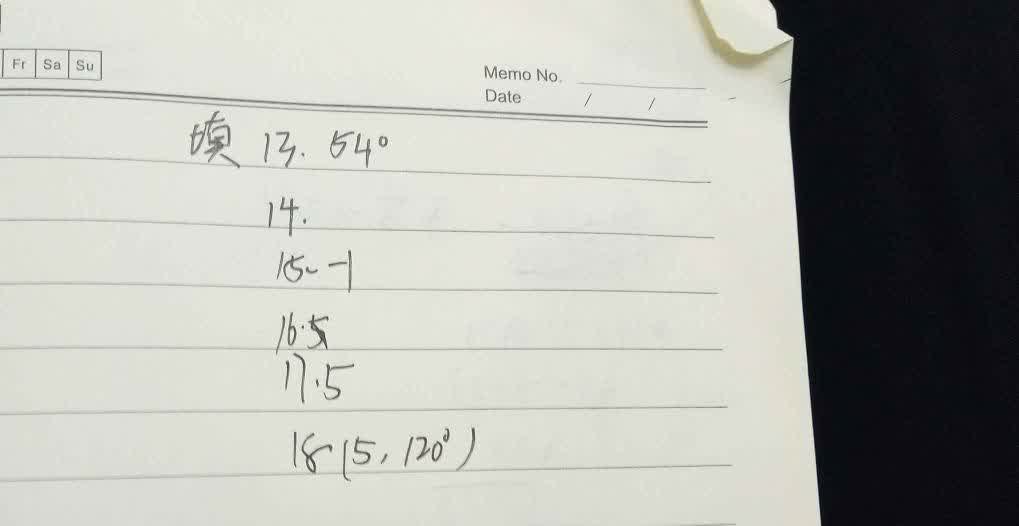 Fr Sa Su
Memo No.
Date / /
填 13. 54°
14.
15. -1
16. 5
17. 5
18 (5, 120°)